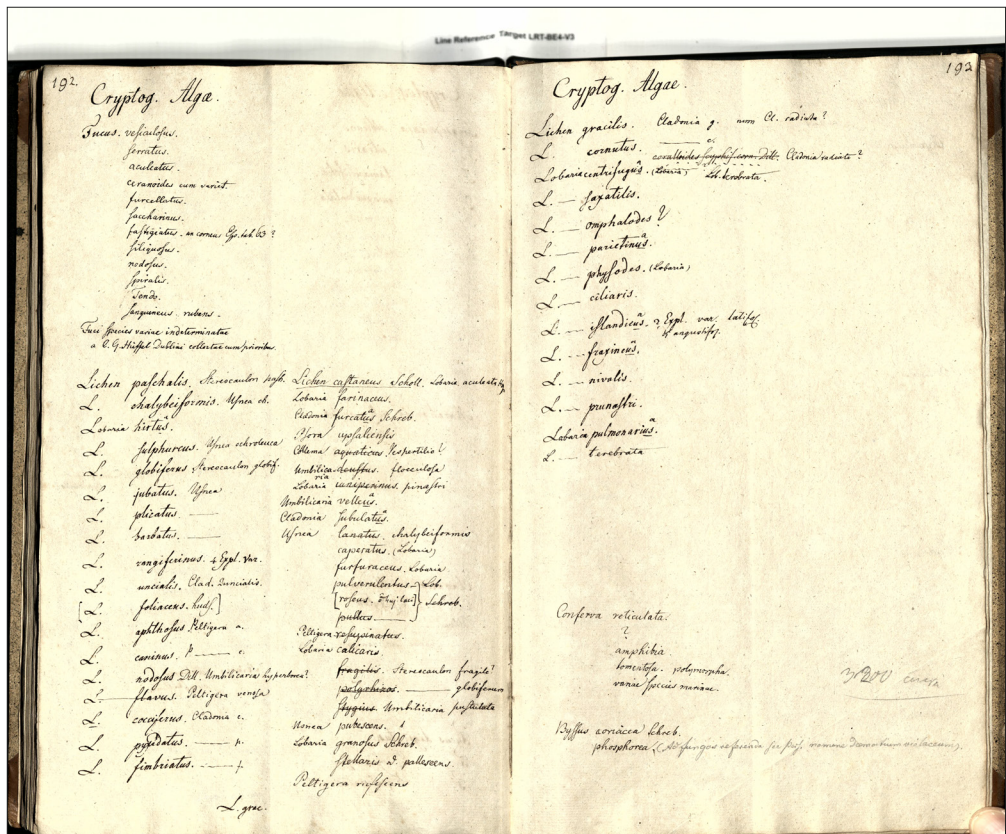 Line Reference Target LRT-BE4-V3
192.
Cryptog. Algæ.
Fucus. vesiculosus.
serratus.
aculeatus.
ceranoides cum variet.
furcellatus.
saccharinus.
fastigiatus. an corneus tab. 63?
siliquosus.
nodosus.
spiralis.
Tendo.
sanguineus. rubens.
Fuci species variae indeterminatae
a C. G. Dublini collectae cum prioribus.
Lichen paschalis. Stereocaulon pasch.
L. chalybeiformis. Usnea ch.
Lobaria hirtus.
L. sulphureus. Usnea ochroleuca
L. globiferus. Stereocaulon globif.
L. jubatus. Usnea
L. plicatus. —
L. barbatus. —
L. rangiferinus. 4 Expl. Var.
L. uncialis. Clad. uncialis.
[L. foliaceus. Huds.]
L. aphthosus. Peltigera a.
L. caninus. P — c.
L. nodosus Dill. Umbilicaria hyperborea?
L. flavus. Peltigera venosa
L. cocciferus. Cladonia c.
L. pyxidatus. — p.
L. fimbriatus. — f.
L. grac.
Lichen castaneus Scholl. Lobaria aculeata
Lobaria farinaceus.
Cladonia furcatus Schreb.
Psora upsaliensis
Collema aquaticus Vespertilio?
Umbilicaria deustus. flocculosa
Lobaria juniperinus. pinastri
Umbilicaria velleus.
Cladonia subulatus.
Usnea lanatus. chalybeiformis
caperatus. (Lobaria)
furfuraceus. Lobaria
pulverulentus — Lob.
[roseus.] Schreb.
pullus —
Peltigera resupinatus.
Lobaria calicaris.
fragilis. Stereocaulon fragile?
polyrhizos. — globiferum
stygius. Umbilicaria pustulata
Usnea pubescens.
Lobaria granosus Schreb.
stellaris d. pallescens.
Peltigera rufescens
193
Cryptog. Algae.
Lichen gracilis. Cladonia g. num Cl. radiata?
L. cornutus. coralloides Dill. Cladonia radiata?
Lobaria centrifugus. (Lobaria) Lob. terebrata.
L. — saxatilis.
L. — omphalodes?
L. — parietinus.
L. — physodes. (Lobaria)
L. — ciliaris.
L. — islandicus. 2 Expl. var. latifol. & angustifol.
L. — fraxineus.
L. — nivalis.
L. — prunastri.
Lobaria pulmonarius.
L. — terebrata
Conferva reticulata.
?
amphibia.
tomentosa. polymorpha.
variae species marinae.
3200 circa
Byssus coriacea Schreb.
phosphorea (Ad fungos referenda sub nomine)